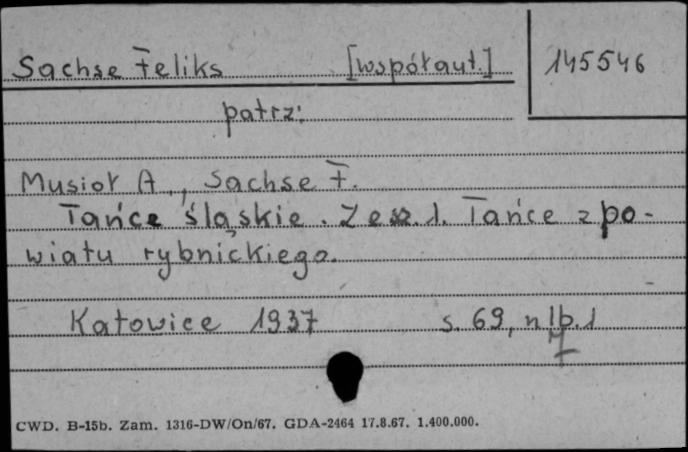 Sachse Feliks [współaut.] 145546
patrz:
Musioł A., Sachse F.
Tańce śląskie. Zesz. 1. Tańce z po-
wiatu rybnickiego.
Katowice 1937 s. 69, nlb. 1
CWD. B-15b. Zam. 1316-DW/On/67. GDA-2464 17.8.67. 1.400.000.